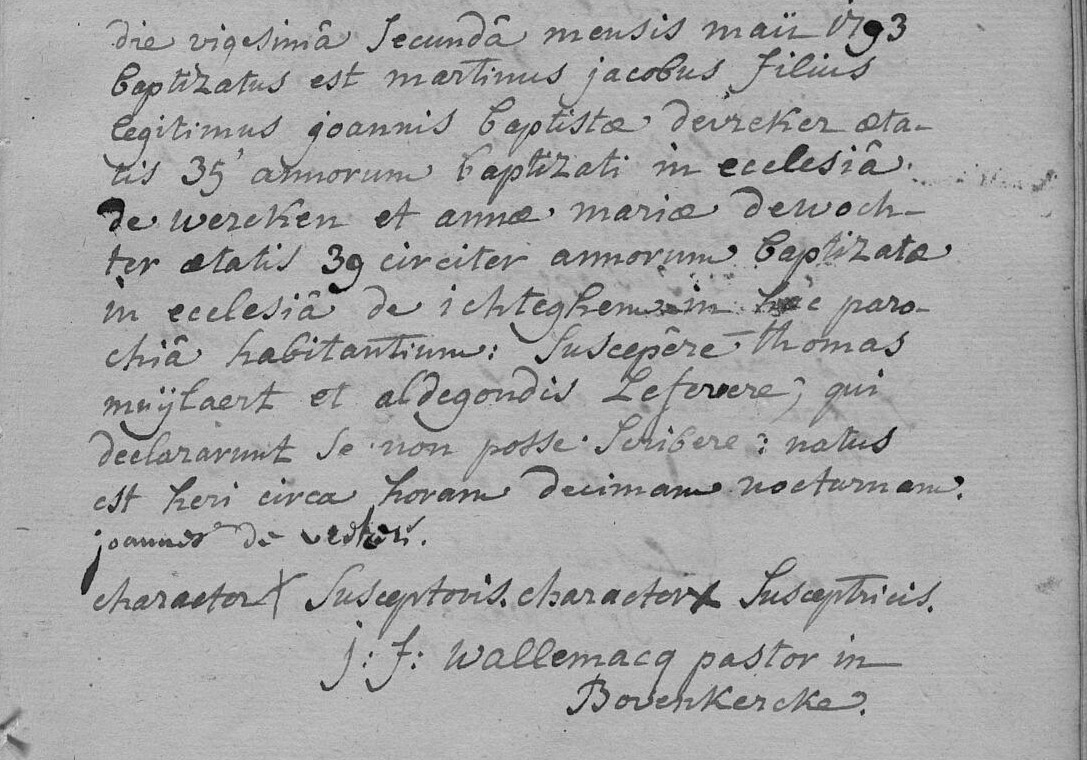 die vigesimâ secundâ mensis maii 1793
baptizatus est martinus jacobus filius
legitimus joannis baptistæ deireker æta-
tis 35 annorum baptizati in ecclesiâ
de wercken et annæ mariæ dewoch-
ter ætatis 39 circiter annorum baptizatæ
in ecclesiâ de ichteghem in hac paro-
chiâ habitantium: Suscepêre thomas
muÿlaert et aldegondis Lefevere, qui
declararunt se non posse scribere: natus
est heri circa horam decimam nocturnam.
joannes de
character X Susceptoris. character X Susceptricis.
j: f: wallemacq pastor in
Bovenkercke.